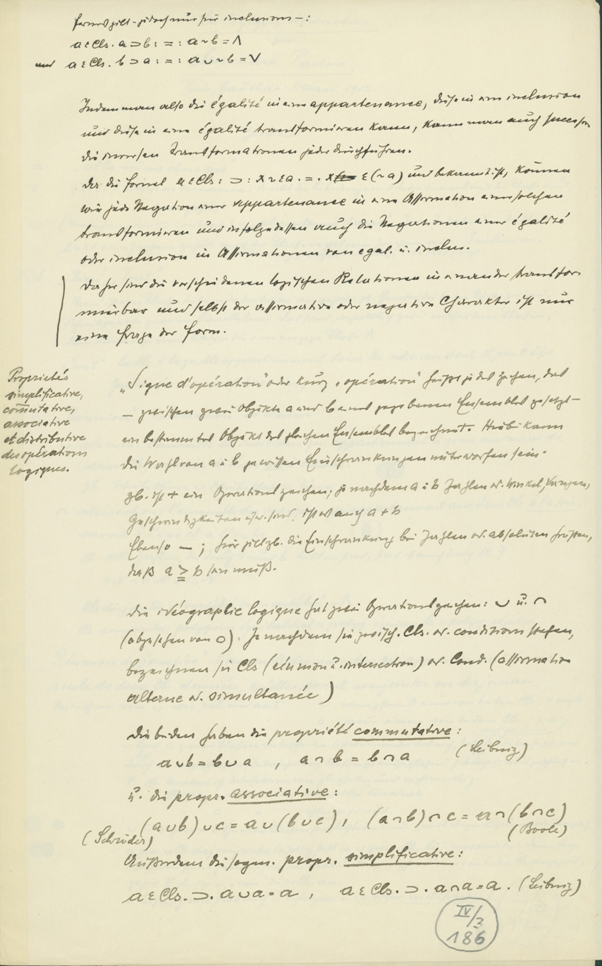 ferner gilt - jedoch nur für inclusions - :
a ε Cls. a ⊃ b : = : a ~ b = Λ
und a ε Cls. b ⊃ a : = : a ∪ ~ b = V
Indem man also die égalité in eine appartenance, diese in eine inclusion
und diese in eine égalité transformieren kann, kann man auch
die inversen Transformationen jeder durchführen.
Da die Formel a ε Cls : ⊃ : x ~ ε a . = . x ε (~ a) uns bekannt ist, können
wir jede Negation einer appartenance in eine Affirmation einer solchen
transformieren und infolgedessen auch die Negationen einer égalité
oder inclusion in Affirmationen von egal. u. inclus.
Daher sind die verschiedenen logischen Relationen ineinander transfor-
mierbar und selbst der affirmative oder negative Charakter ist nur
eine Frage der Form.
Proprietés
simplificative,
commutative,
associative
et distributive
des opérations
logiques.
„Signe d'opération" oder kurz „opération" heißt jedes Zeichen, das
– zwischen zwei Objekte a und b eines gegebenen Ensembles gesetzt –
ein bestimmtes Objekt des gleichen Ensembles bezeichnet. Hiebei kann
die Wahl von a u. b gewissen Einschränkungen unterworfen sein.
zb. ist + ein Operationszeichen; je nachdem a u. b Zahlen od. Winkel,
Geschwindigkeiten usw. sind, ist es auch a + b
Ebenso — ; hier gilt zb. die Einschränkung bei Zahlen od. absoluten Größen,
daß a ≥ b sein muß.
Die idéographie logique hat zwei Operationszeichen: ∪ u. ∩
(abgesehen von ⊃). Je nachdem sie zwisch. Cls. od. conditions stehen,
bezeichnen sie Cls (réunion u. intersection) od. Cond. (affirmation
alterne od. simultanée)
Die beiden haben die propriété commutative:
a ∪ b = b ∪ a , a ∩ b = b ∩ a (Leibniz)
u. die propr. associative:
(Schröder) (a ∪ b) ∪ c = a ∪ (b ∪ c) , (a ∩ b) ∩ c = a ∩ (b ∩ c) (Boole)
Außerdem die sogen. propr. simplificative:
a ε Cls. ⊃. a ∪ a = a , a ε Cls. ⊃. a ∩ a = a . (Leibniz)
IV/3
186